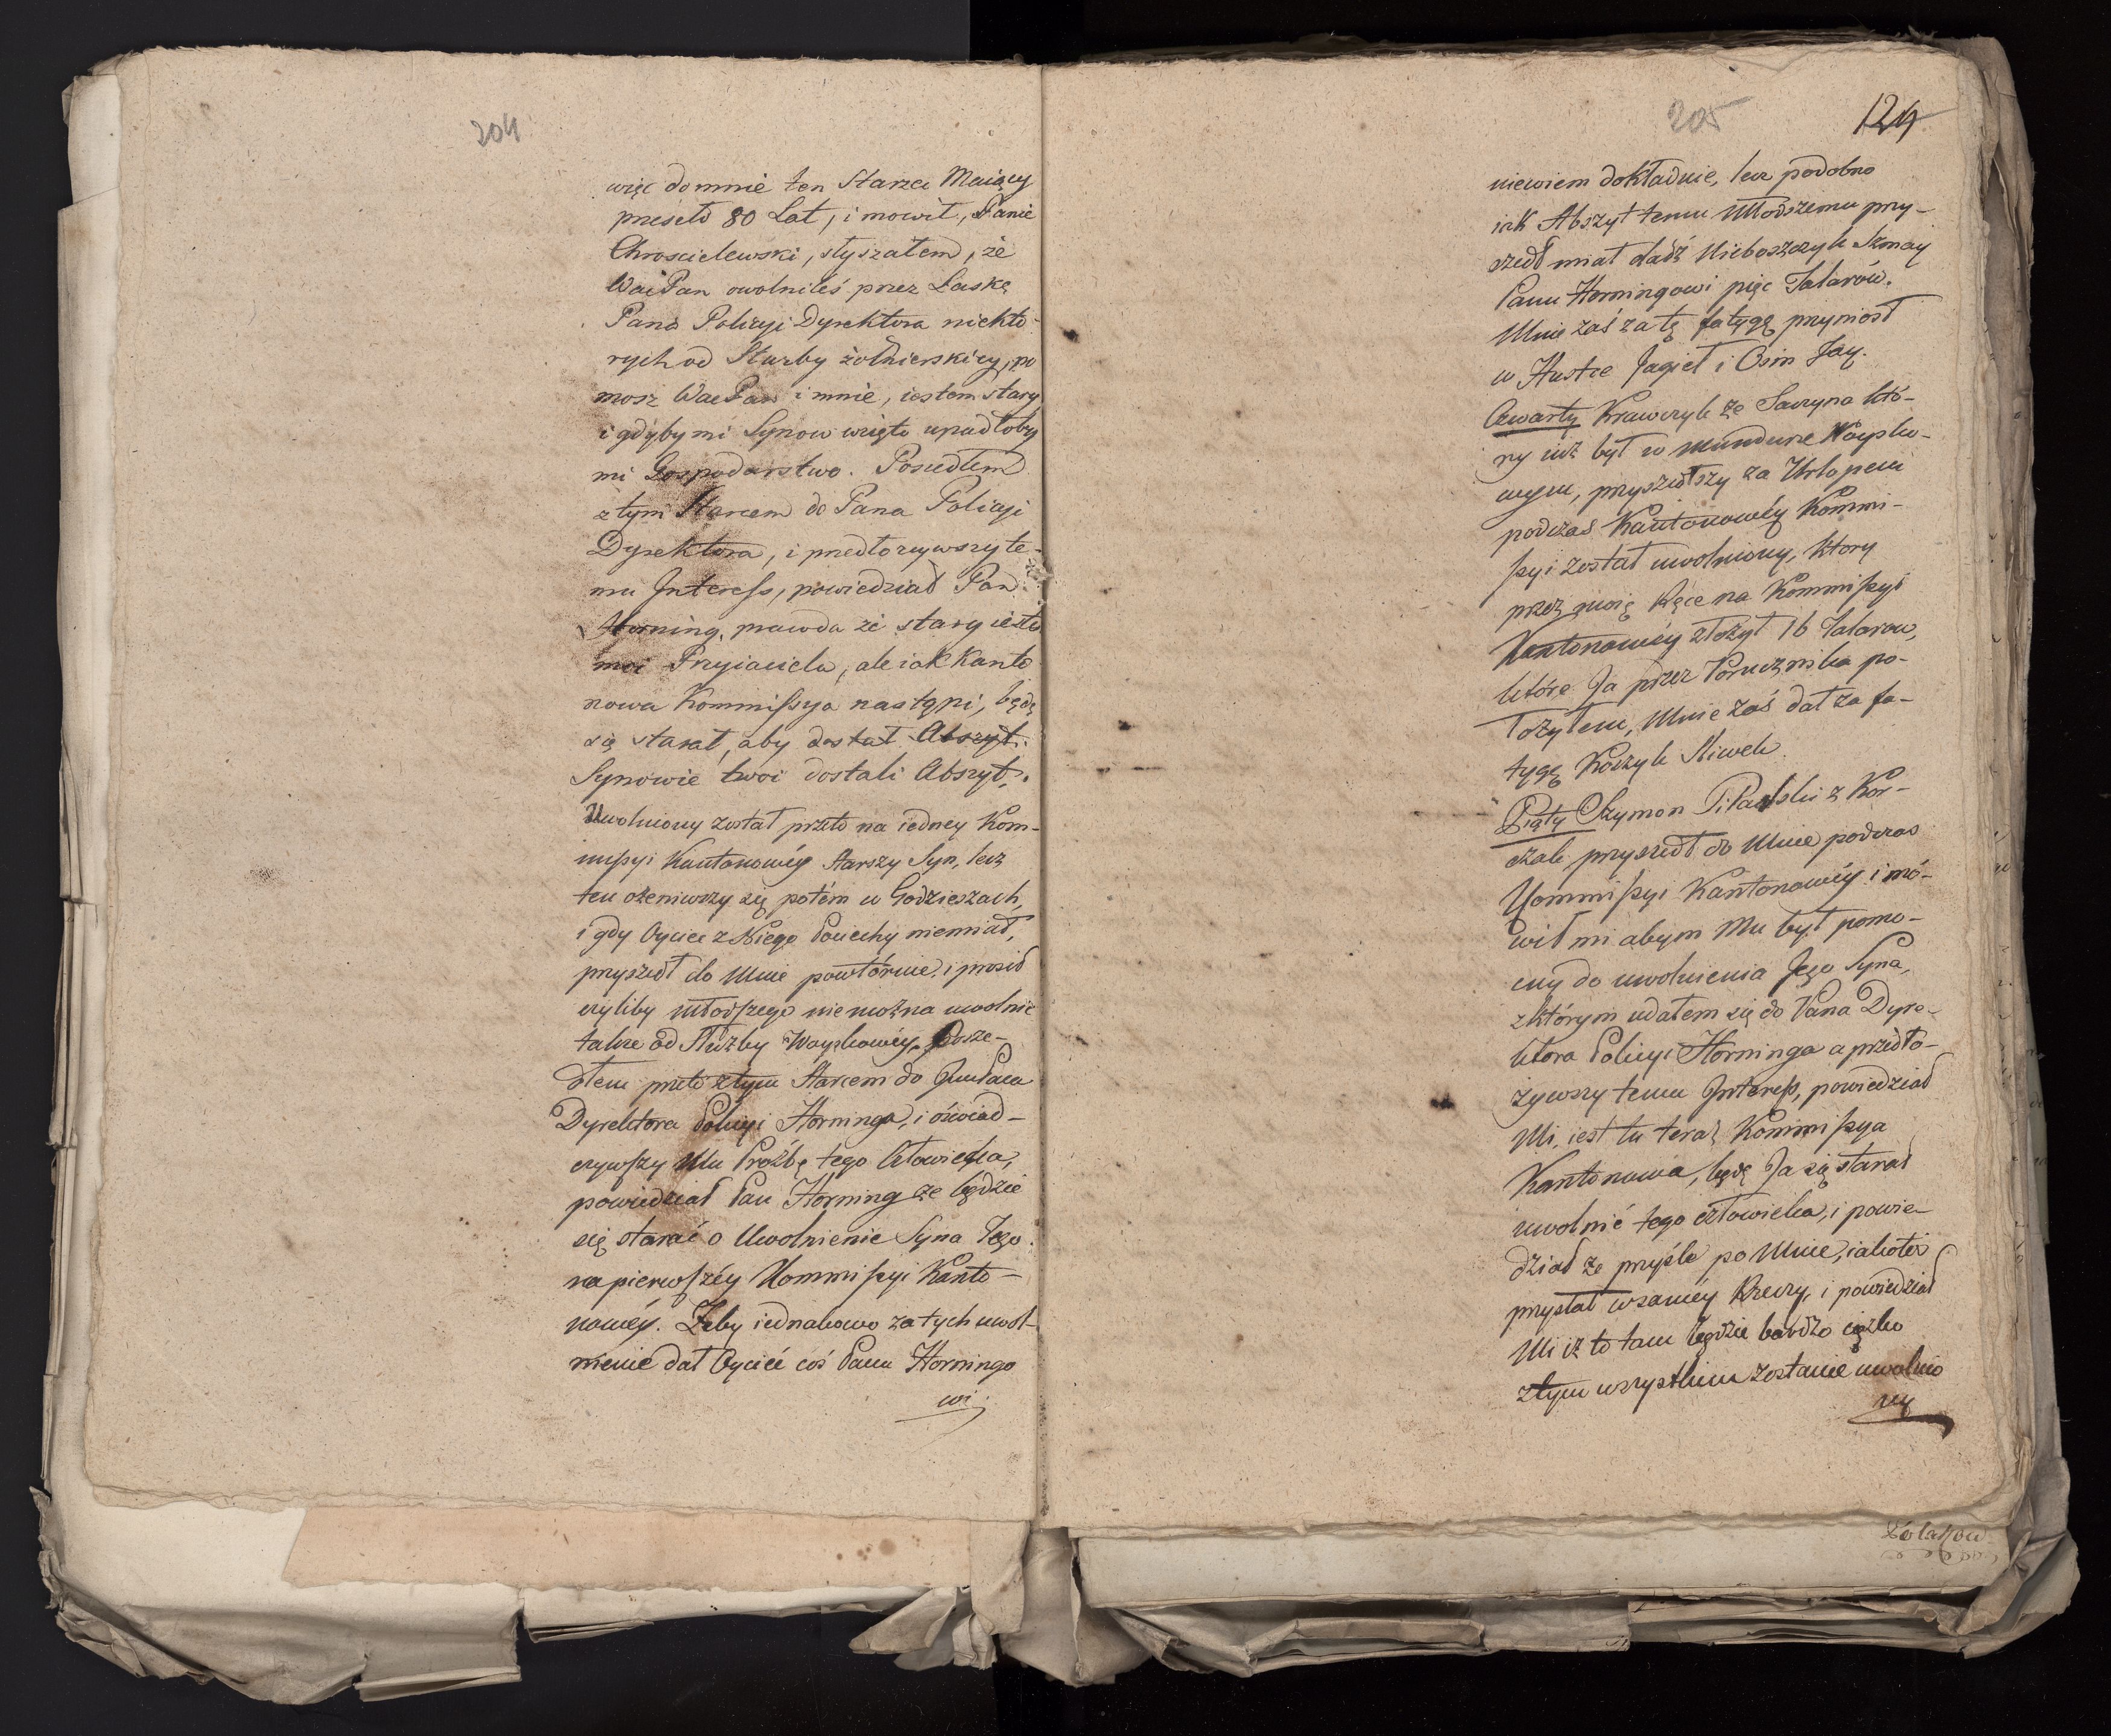 204
więc do mnie ten Starzec Maiący
przeszło 80 Lat, i mowił, Panie
Chroscielewski, słyszałem, że
WaćPan uwolniłeś przez Łaskę
Pana Policyi Dyrektora niekto-
rych od Służby żołnierskiey, po
mosz WaćPan i mnie, iestem stary
i gdyby mi Synow wzięto upadłoby
mi Gospodarstwo. Poszedłem
z tym Starcem do Pana Policyi
Dyrektora, i przedłozywszy te-
mu Interess, powiedział Pan
Horning, prawda że stary iesteś
moi Przyiaciela, ale iak Kanto
nowa Kommissya nastąpi, będę
się starał, aby dostał Abszyt.
Synowie twoi dostali Abszyt.
Uwolniony został przeto na iedney Kom-
missyi Kantonowéy starszy Syn, lecz
ten ożeniwszy się potém w Godzieszach,
i gdy Oyciec z Niego Pociechy niemiał,
przyszedł do Mnie powtórnie, i prosił
czyliby młodszego nie można uwolnić
także od Służby Woyskowéy. Posze-
dłem przeto z tym Starcem do JmPana
Dyrektora Policyi Horninga, i oświad-
czywszy Mu Prożbę tego Człowieka,
powiedział Pan Horning że będzie
się starać o Uwolnienie Syna Jego
na pierwszéy Kommissyi Kanto-
nowéy. Żeby iednakowo za tych uwol-
nienie dał Oyciec coś Panu Horningo
wi
205
124
niewiem dokładnie, lecz podobno
iak Abszyt temu Młodszemu przy-
szedł miał dadź Nieboszczyk Szmay
Panu Horningowi pięc Talarów.
Mnie zaś za tę fatygę przyniosł
w Hustce Jagieł i Osim Jay.
Czwarty Krawczyk ze Saczyna któ-
ry iuż był w Mundurze Woysko-
wym, przyszedłszy za Urlopem
podczas Kantonowéy Kommi-
ssyi został uwolniony, ktory
przez moię Ręce na Kommissyi
Kantonowéy złożył 16 Talarow,
które Ja przez Porucznika po-
łożyłem, Mnie zaś dał za fa-
tygę Koszyk Sliwek
Piąty Szymon Pilarski z Kor-
czak przyszedł do Mnie podczas
Kommissyi Kantonowéy i mó-
wił mi abym Mu był pomo-
cny do uwolnienia Jego Syna,
z którym udałem się do Pana Dyre-
ktora Policyi Horninga a przedło-
żywszy temu Interess, powiedział
Mi, iest tu teraz Kommissya
Kantonowa, będę Ja się starał
uwolnić tego człowieka, i powie-
dział że przyśle po Mnie, iakoteż
przysłał w saméy Rzeczy, i powiedział
Mi iż to tam będzie bardzo ciężko
z tym wszystkim zostanie uwolnio
ny